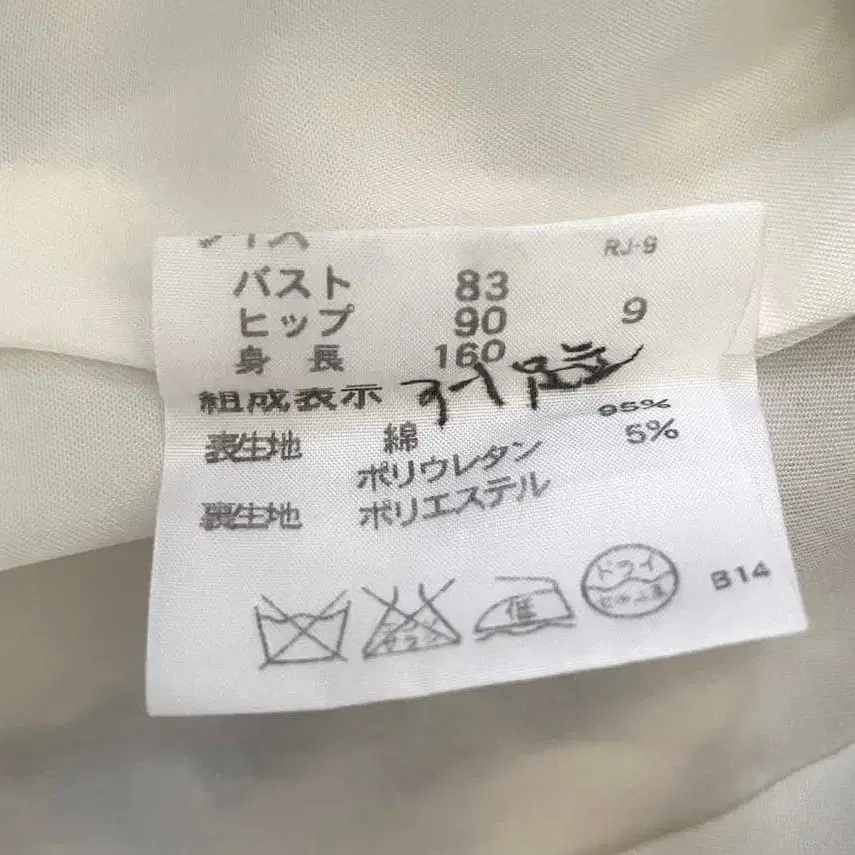 RJ-9
バスト 83
ヒップ 90 9
身長 160
組成表示
表生地 綿 95%
ポリウレタン 5%
裏生地 ポリエステル
低 ドライ B14